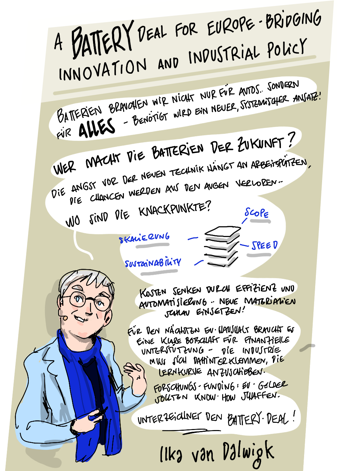 A BATTERY DEAL FOR EUROPE - BRIDGING
INNOVATION AND INDUSTRIAL POLICY
BATTERIEN BRAUCHEN WIR NICHT NUR FÜR AUTOS.. SONDERN
FÜR ALLES - BENÖTIGT WIRD EIN NEUER, SYSTEMISCHER ANSATZ!
WER MACHT DIE BATTERIEN DER ZUKUNFT?
DIE ANGST VOR DER NEUEN TECHNIK HÄNGT AN ARBEITSPLÄTZEN,
DIE CHANCEN WERDEN AUS DEN AUGEN VERLOREN..
WO SIND DIE KNACKPUNKTE?
SCOPE
SKALIERUNG
SPEED
SUSTAINABILITY
KOSTEN SENKEN DURCH EFFIZIENZ UND
AUTOMATISIERUNG - NEUE MATERIALIEN
SCHLAU EINSETZEN!
FÜR DEN NÄCHSTEN EU-HAUSHALT BRAUCHT ES
EINE KLARE BOTSCHAFT FÜR FINANZIELLE
UNTERSTÜTZUNG - DIE INDUSTRIE
MUSS SICH DAHINTERKLEMMEN, DIE
LERNKURVE ANZUSCHIEBEN.
FORSCHUNGS-FUNDING-EU-GELDER
SOLLTEN KNOW-HOW SCHAFFEN.
UNTERZEICHNET DEN BATTERY-DEAL!
Ilka van Dalwigk